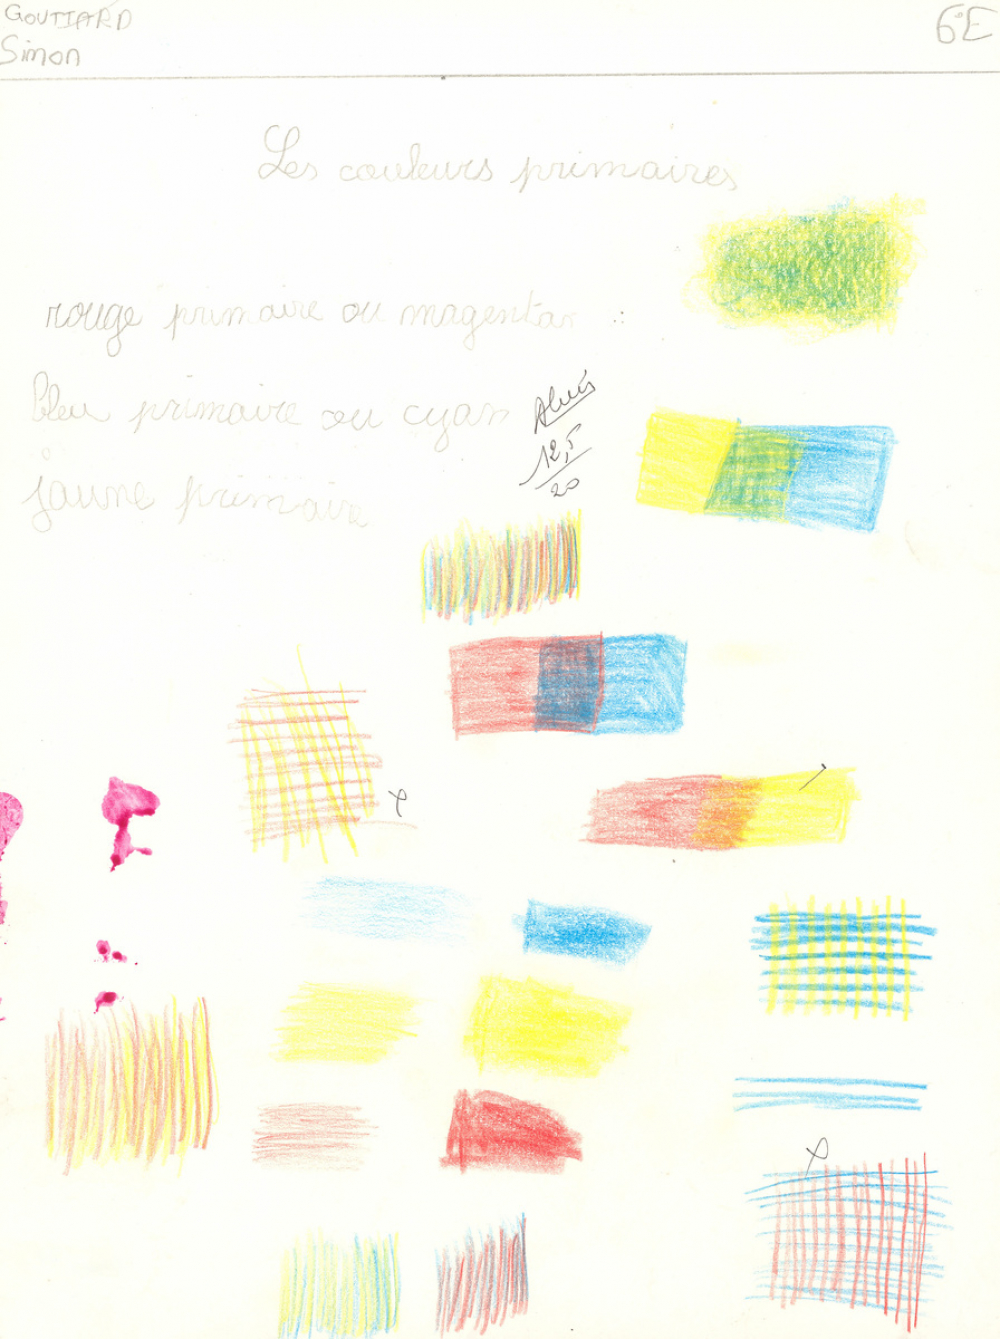 GOUTTARD
Simon
6°E
Les couleurs primaires
rouge primaire ou magenta :
bleu primaire ou cyan
12,5
20
jaune primaire